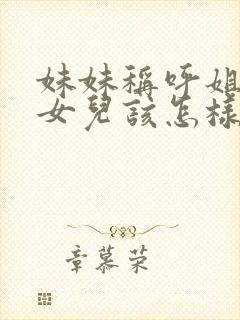 妹妹稱呼姐
女兒該怎樣
章慕荣